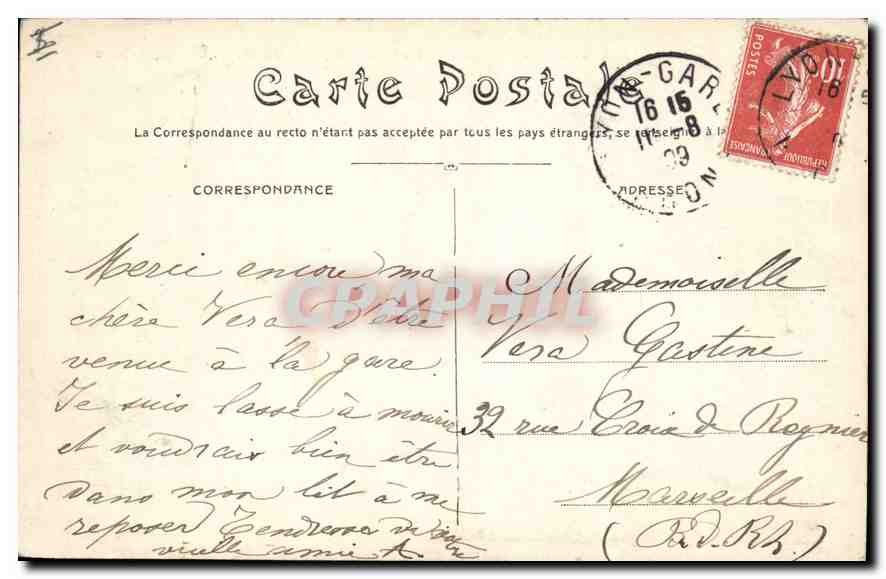 Carte Postale
La Correspondance au recto n'étant pas acceptée par tous les pays étrangers, se renseigner à la
CORRESPONDANCE
ADRESSE
Merci encore ma
chère Vera d'être
venue à la gare.
Je suis lasse à mourir
et voudrais bien être
dans mon lit à me
reposer Tendresses de votre
vieille amie A.
Mademoiselle
Vera Gastine
32 rue Croix de Regnier
Marseille
(B.d.Rh.)
LYON-GARE
16 15
11-8
09
LYON
POSTES
10
REPUBLIQUE FRANCAISE
LYON
CPAPHIL